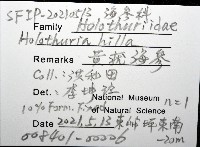 SFIP-20210513 海參科
Family Holothuriidae
Holothuria hilla
Remarks 黃疣海參
Coll.: 洪和田
Det.: 李坤瑄
National Museum of Natural Science
10% Form. n=1
Date 2021.5.13 東南
-20m
008401-00006